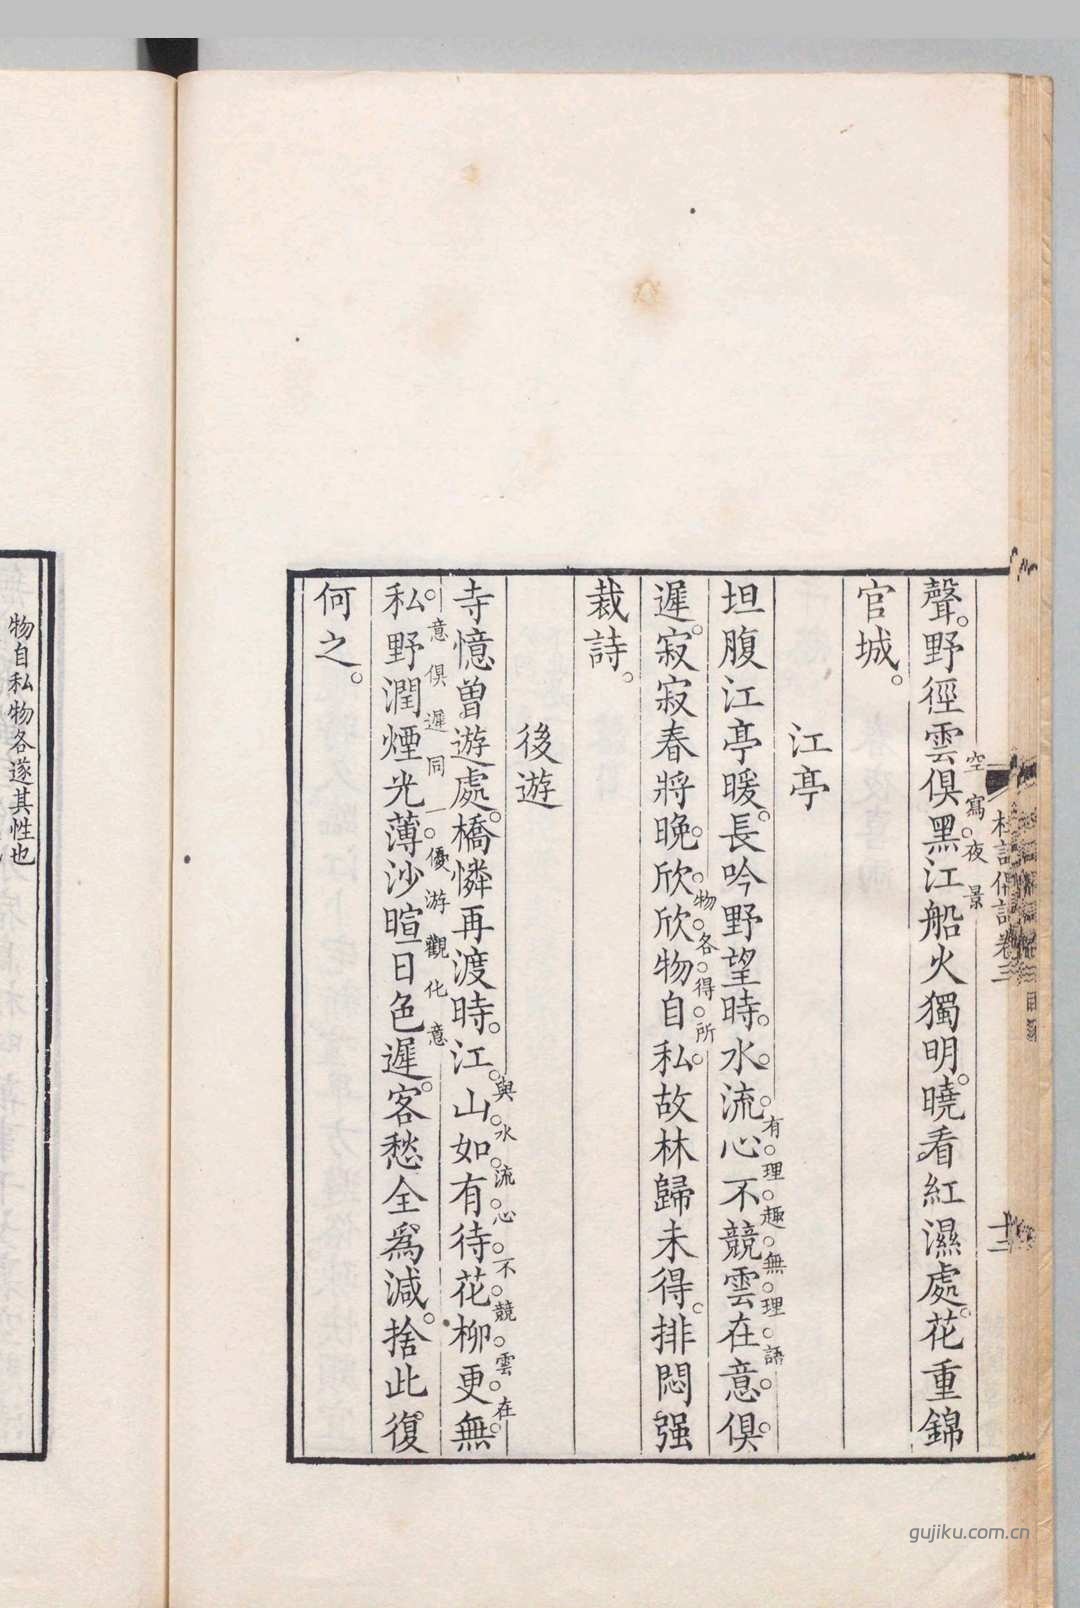 杜詩偶評卷三
十三
聲野徑雲俱黑江船火獨明曉看紅濕處花重錦
空寫夜景
官城
江亭
坦腹江亭暖長吟野望時水流心不競雲在意俱
有理趣無理語
遲寂寂春將晚欣欣物自私故林歸未得排悶强
物各得所
裁詩
後遊
寺憶曾遊處橋憐再渡時江山如有待花柳更無
與水流心不競雲在
私野潤煙光薄沙暄日色遲客愁全爲減捨此復
意俱遲同一優游觀化意
何之
物自私物各遂其性也
gujiku.com.cn